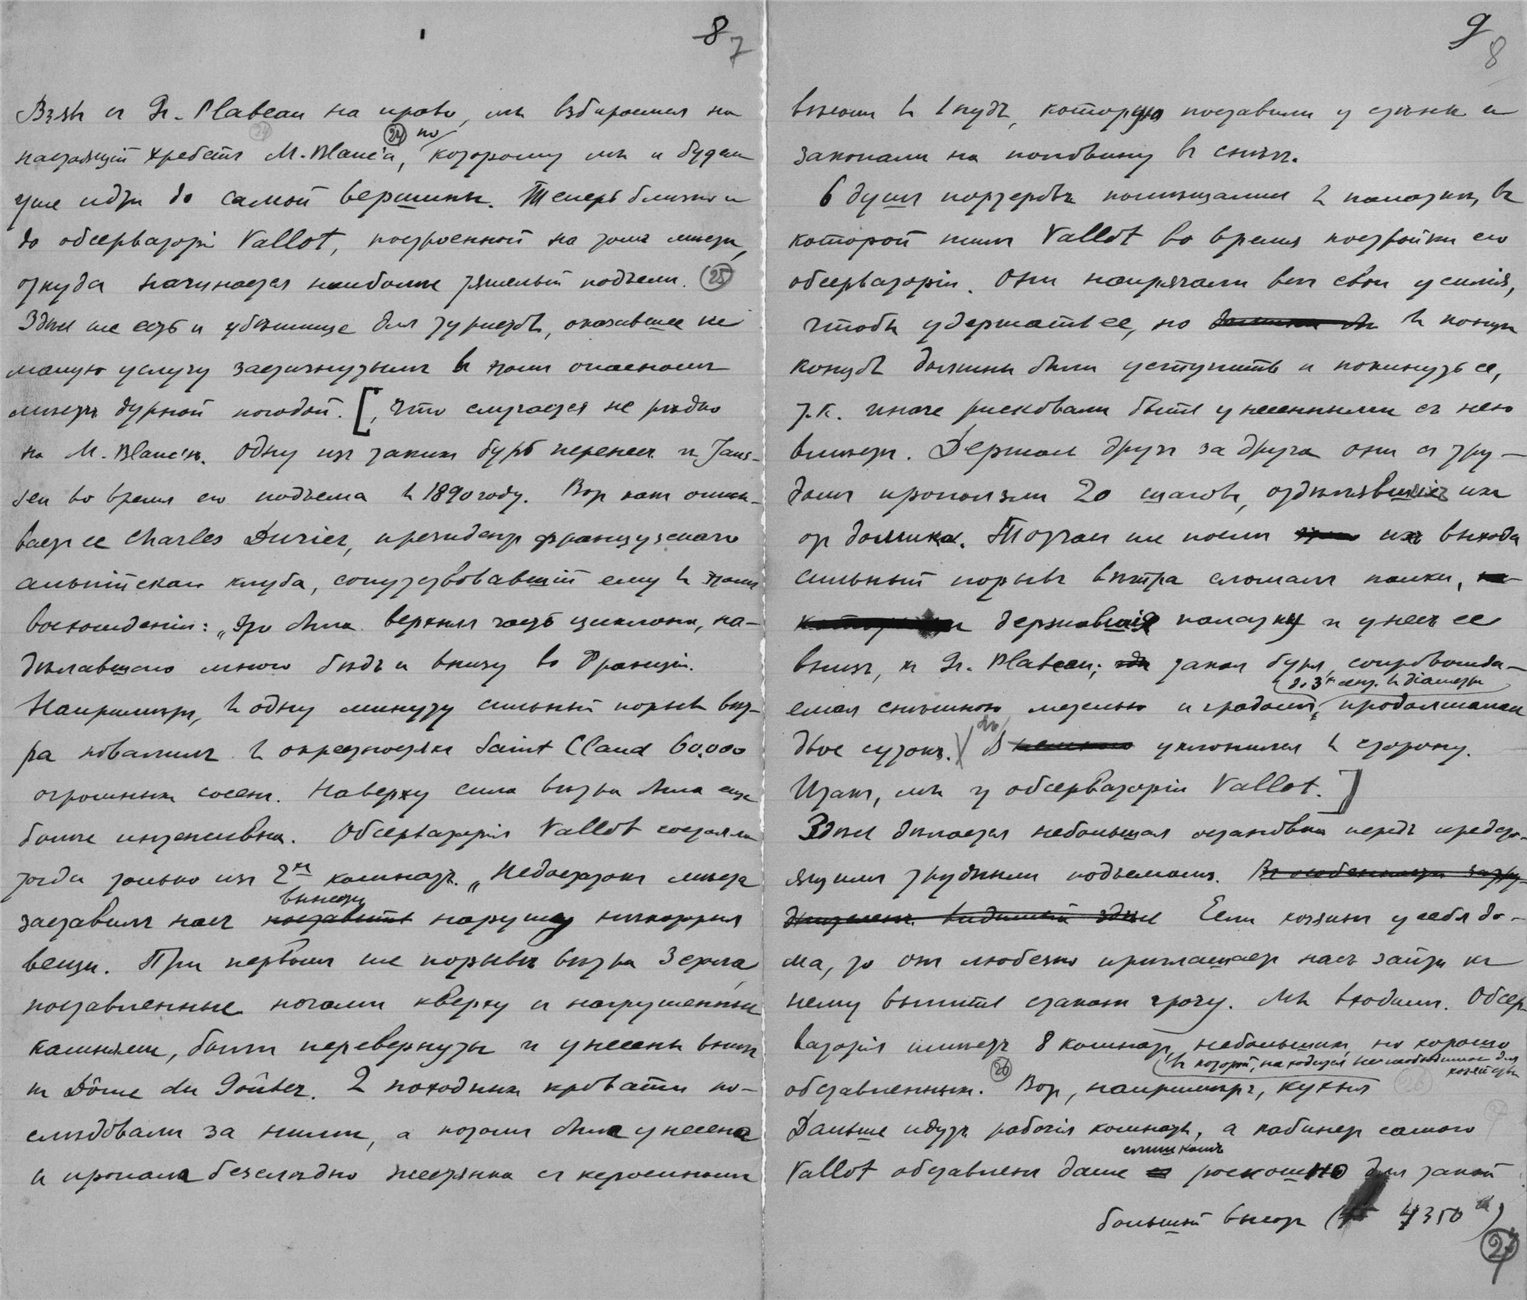 8 7
Взявъ съ Gr. Plateau на право, мы взбираемся на
настоящій хребетъ M. Blanc'а, (24) по которому мы и будемъ
уже идти до самой вершины. Теперь близко и
до обсерваторіи Vallot, построенной на томъ мѣстѣ,
откуда начинается наиболѣе тяжелый подъемъ. (25)
Здѣсь же есть и убѣжище для туристовъ, оказавшее не
малую услугу застигнутымъ въ этомъ опасномъ
мѣстѣ дурной погодой. [, что случается не рѣдко
на M. Blanc'ѣ. Одну изъ такихъ бурь перенесъ и Jans-
sen во время его подъема въ 1890 году. Вотъ какъ описы-
ваетъ ее Charles Durier, президентъ французскаго
альпійскаго клуба, сопутствовавшій ему въ этомъ
восхожденіи: „Это была верхняя часть циклона, на-
дѣлавшаго много бѣдъ и внизу во Франціи.
Напримѣръ, въ одну минуту сильный порывъ вѣт-
ра повалилъ въ окрестностяхъ Saint Claud 60,000
огромныхъ сосенъ. Наверху сила вѣтра была еще
болѣе интенсивна. Обсерваторія Vallot состояла
тогда только изъ 2хъ комнатъ. „Недостатокъ мѣста
заставилъ насъ вынести наружу нѣкоторыя
вещи. При первомъ же порывѣ вѣтра 3 стола,
поставленные ногами кверху и нагруженные
камнями, были перевернуты и унесены внизъ
къ Dôme du Goûter. 2 походныя кровати по-
слѣдовали за ними, а потомъ была унесена
и пропала безслѣдно жестянка съ керосиномъ
9 8
вѣсомъ въ 1 пудъ, которую поставили у стѣны и
закопали на половину въ снѣгъ.
6 душъ портеровъ помѣщались въ палаткѣ, въ
которой жилъ Vallot во время постройки его
обсерваторіи. Они напрягали всѣ свои усилія,
чтобы удержать ее, но въ концѣ
концовъ должны были уступить и покинуть ее,
т.к. иначе рисковали быть унесенными съ нею
вмѣстѣ. Держась другъ за друга они съ тру-
домъ проползли 20 шаговъ, отдѣлявшихъ ихъ
отъ домика. Тотчасъ же послѣ ихъ выхода
сильный порывъ вѣтра сломалъ палки,
державшія палатку и унесъ ее
внизъ, къ Gr. Plateau; такая буря, сопровождае-
емая снѣжною метелью и градомъ, до 3хъ сант. въ діаметрѣ продолжалась
двое сутокъ. уклонился въ сторону.
Итакъ, мы у обсерваторіи Vallot.]
Здѣсь дѣлается небольшая остановка передъ предсто-
ящимъ труднымъ подъемомъ.
Если хозяинъ у себя до-
ма, то онъ любезно приглашаетъ насъ зайти къ
нему выпить стаканъ грогу. Мы входимъ. Обсер
ваторія имѣетъ 8 комнатъ небольшихъ, но хорошо
обставленныхъ. (26) Вотъ, напримѣръ, кухня въ которой находится необходимое для хозяйства
Дальше идутъ рабочія комнаты, а кабинетъ самого
Vallot обставленъ даже слишкомъ роскошно для такой
большой высоты (4350 м)
(27)